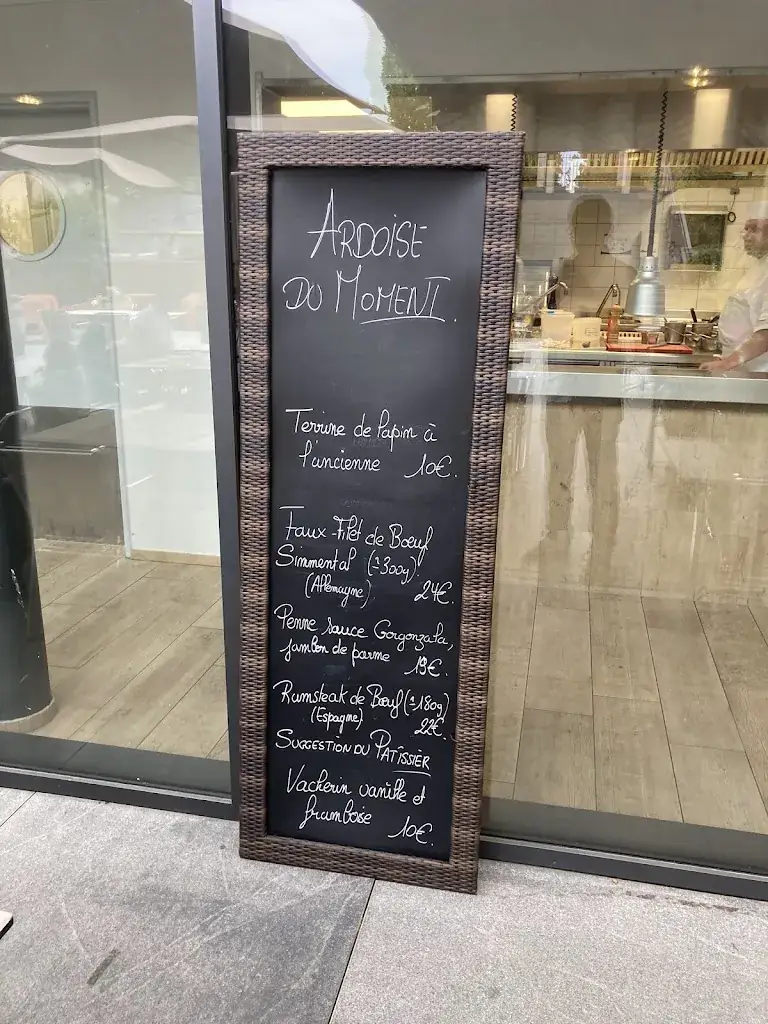 ARDOISE
DU MOMENT.
Terrine de lapin à
l'ancienne 10€.
Faux-Filet de Bœuf
Simmental (±300g)
(Allemagne) 24€.
Penne sauce Gorgonzola,
jambon de parme 19€.
Rumsteak de Bœuf (±180g)
(Espagne) 22€.
SUGGESTION DU PATÎSSIER
Vacherin vanille et
framboise 10€.